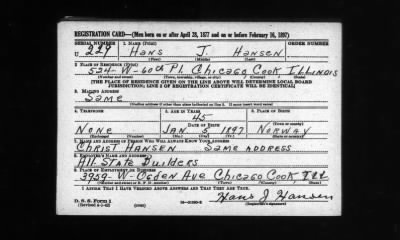 REGISTRATION CARD—(Men born on or after April 28, 1877 and on or before February 16, 1897)
SERIAL NUMBER 1. NAME (Print) ORDER NUMBER
U 229 HANS J. HANSEN
(First) (Middle) (Last)
2. PLACE OF RESIDENCE (Print)
524-W-60th Pl. CHICAGO COOK ILLINOIS
(Number and street) (Town, township, village, or city) (County) (State)
[THE PLACE OF RESIDENCE GIVEN ON THE LINE ABOVE WILL DETERMINE LOCAL BOARD
JURISDICTION; LINE 2 OF REGISTRATION CERTIFICATE WILL BE IDENTICAL]
3. MAILING ADDRESS
SAME
[Mailing address if other than place indicated on line 2. If same insert word same]
4. TELEPHONE 5. AGE IN YEARS 6. PLACE OF BIRTH
45
DATE OF BIRTH
NONE JAN. 5 1897 NORWAY
7. NAME AND ADDRESS OF PERSON WHO WILL ALWAYS KNOW YOUR ADDRESS
CHRIST HANSEN SAME ADDRESS
8. EMPLOYER'S NAME AND ADDRESS
All. STATE BUILDERS
9. PLACE OF EMPLOYMENT OR BUSINESS
3959-W-OGDEN AVE CHICAGO COOK Ill
(Number and street or R. F. D. number) (Town) (County) (State)
I AFFIRM THAT I HAVE VERIFIED ABOVE ANSWERS AND THAT THEY ARE TRUE.
D. S. S. Form 1
(Revised 4-1-42) (over)
Hans J. Hansen